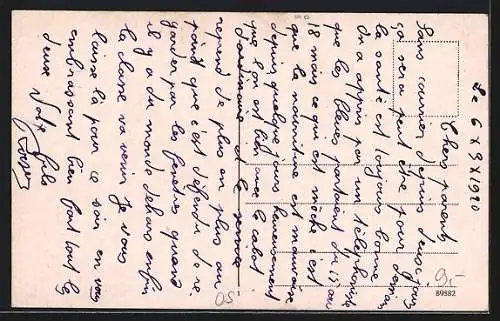 Le 6 X 9 X 1920
Chers parents
Sans courrier depuis deux jours
ça sera peut être pour demain
la santé est toujours bonne
On a appris par un téléphoniste
que les bleus partaient du 15 au
18 mois ce qui est moche c'est
que la nourriture est mauvaise
depuis quelques jours heureusement
que l'on est bien avec le cabot
d'ordinaire et le service
reprend de plus en plus au
point que c'est défendu de re-
garder par les fenêtres quand
il y a du monde dehors enfin
la classe va venir Je vous
laisse là pour ce soir en vous
embrassant bien fort tout les
deux Votre fils
Roger
9,-
89882
05